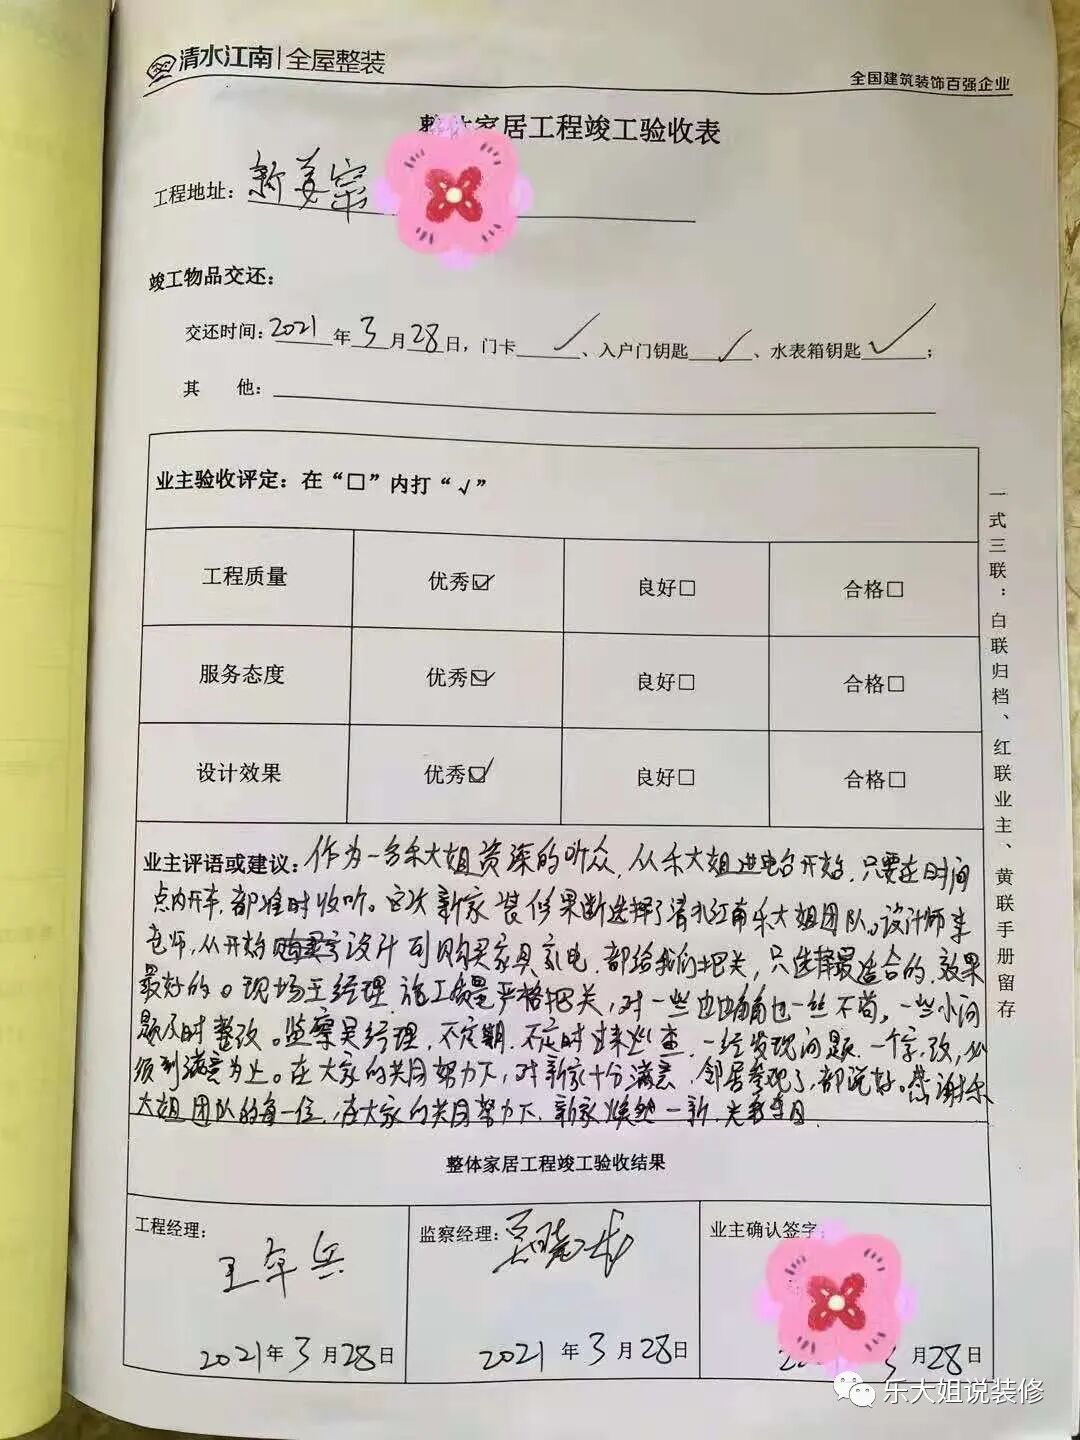 清水江南|全屋整装
全国建筑装饰百强企业
整体家居工程竣工验收表
工程地址：新美宗
竣工物品交还：
交还时间：2021年3月28日，门卡✓、入户门钥匙✓、水表箱钥匙✓；
其 他：
业主验收评定：在“□”内打“√”
工程质量 优秀☑ 良好□ 合格□
服务态度 优秀☑ 良好□ 合格□
设计效果 优秀☑ 良好□ 合格□
业主评语或建议：作为一名乐大姐资深的听众，从乐大姐进电台开始，只要在时间
点内开车，都准时收听。这次新家装修果断选择了清水江南乐大姐团队。设计师
老师，从开始设计到购买家具家电，都给我们把关，只选择最适合的，效果
最好的。现场王经理，施工质量严格把关，对一些边边角角也一丝不苟，一些小问
题及时整改。监察吴经理，不定期，不定时过来巡查，一经发现问题，一个字，改，必
须到满意为止。在大家的共同努力下，对新家十分满意，邻居参观了，都说好。感谢乐
大姐团队的每一位，在大家的共同努力下，新家焕然一新，光彩夺目
整体家居工程竣工验收结果
工程经理： 监察经理： 业主确认签字：
2021年3月28日 2021年3月28日 3月28日
一式三联：白联归档、红联业主、黄联手册留存
乐大姐说装修